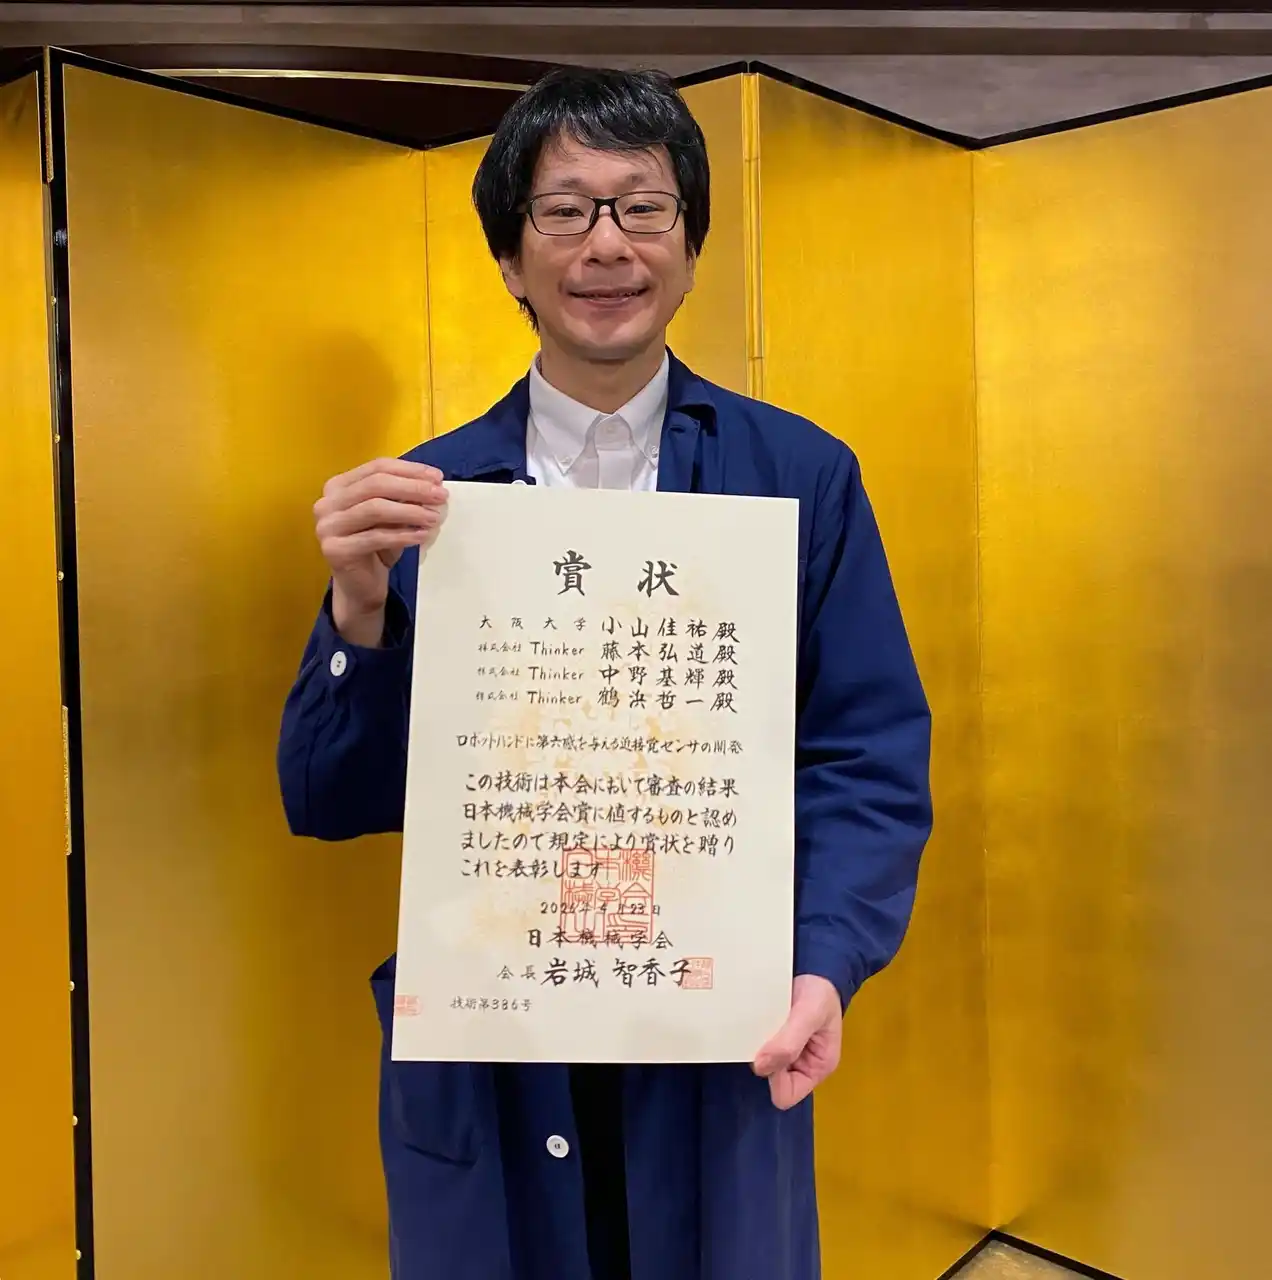 賞状
大阪大学 小山佳祐殿
株式会社 Thinker 藤本弘道殿
株式会社 Thinker 中野基輝殿
株式会社 Thinker 鶴浜哲一殿
ロボットハンドに第六感を与える近接覚センサの開発
この技術は本会において審査の結果
日本機械学会賞に値するものと認め
ましたので規定により賞状を贈り
これを表彰します
2026年4月23日
日本機械学会
会長 岩城智香子
技術第386号